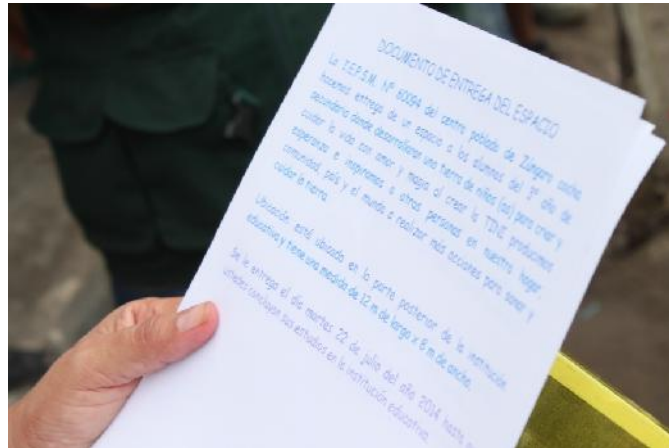 DOCUMENTO DE ENTREGA DEL ESPACIO
La I.E.P.S.M. N° 60094 del centro poblado de Zúngaro cocha
hacemos entrega de un espacio a los alumnos del 3° año de
secundaria donde desarrollaran una tierra de niños (as) para criar y
cuidar la vida con amor y magia al crear la TINI producimos
esperanza e inspiramos a otras personas en nuestro hogar,
comunidad, país y el mundo a realizar más acciones para sanar y
cuidar la tierra.
Ubicación: está ubicado en la parte posterior de la institución
educativa y tiene una medida de 12 m de largo x 8 m de ancho.
Se le entrega el día martes 22 de julio del año 2014 hasta
ustedes concluyan sus estudios en la institución educativa.